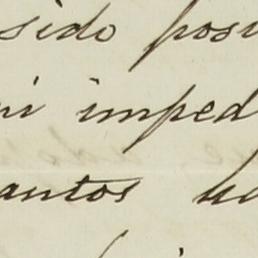 sido posi
ni imped
antos